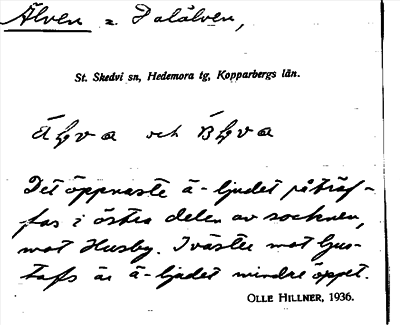 Älven = Dalälven,
St. Skedvi sn, Hedemora tg, Kopparbergs län.
och
Det öppnaste ä-ljudet påträf-
fas i östra delen av socknen,
mot Husby. I väster mot Gus-
tafs är ä-ljudet mindre öppet.
OLLE HILLNER, 1936.